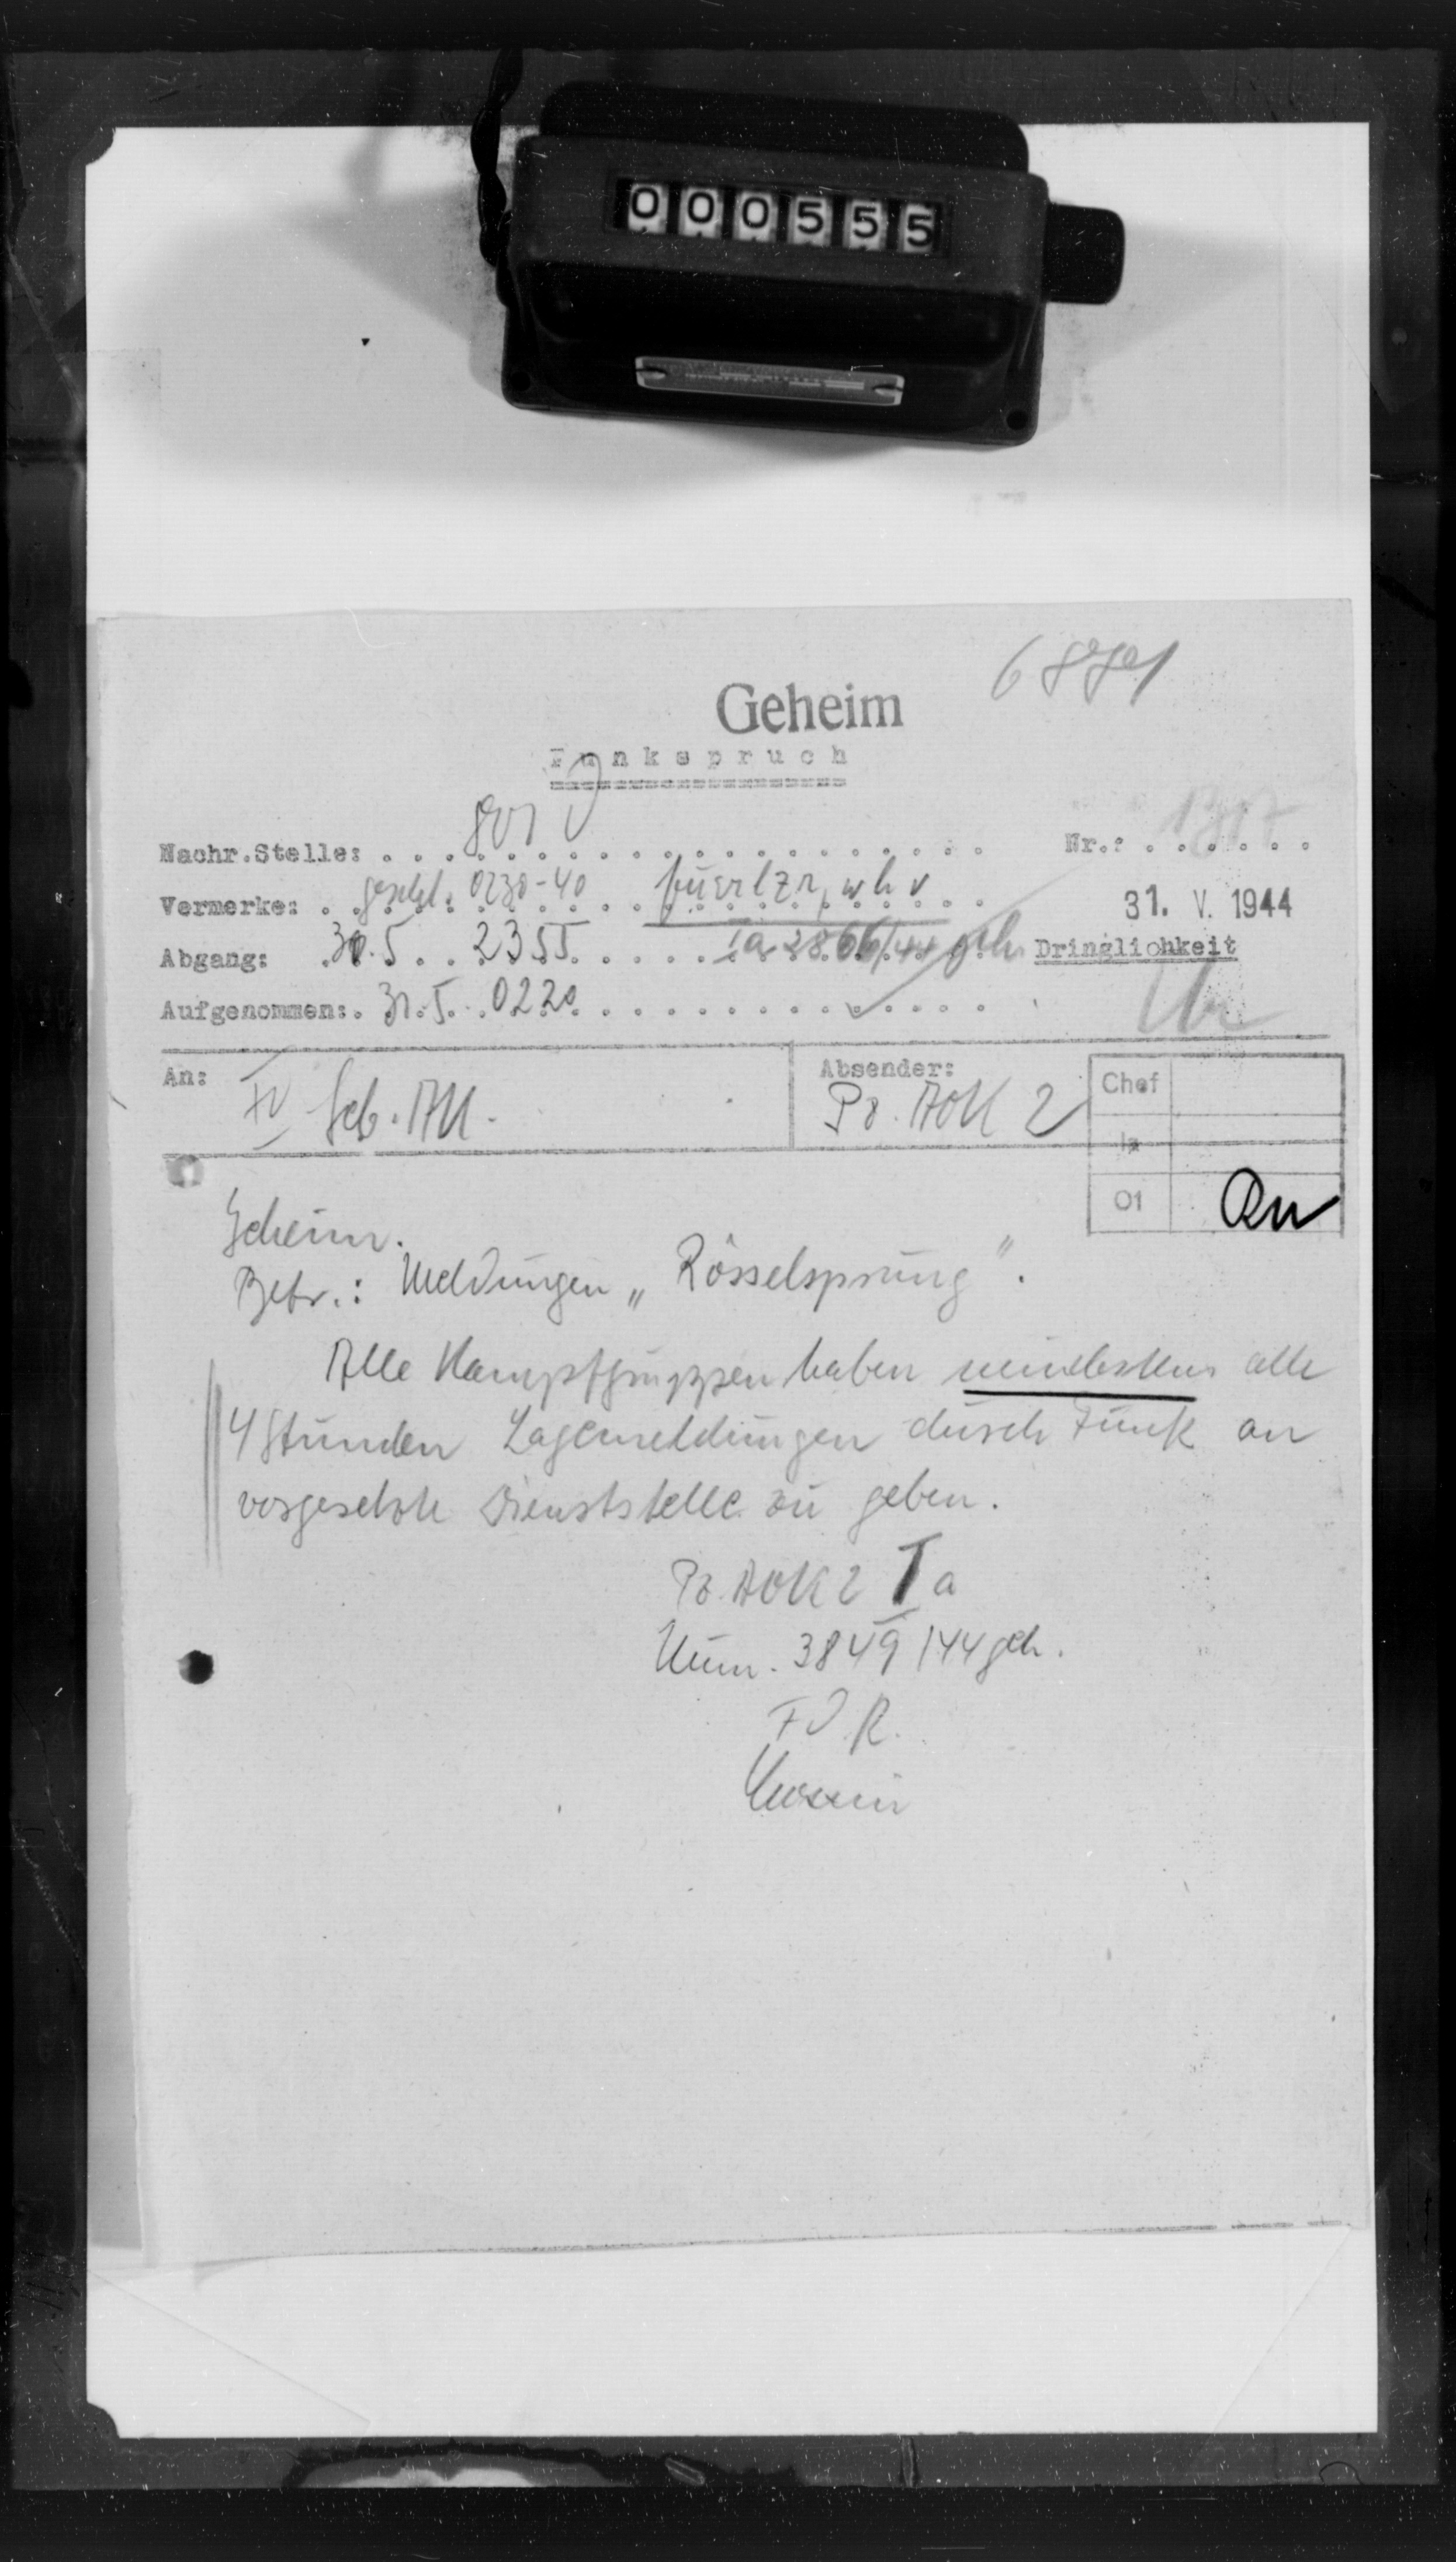 000555
Geheim
Funkspruch
Nachr.Stelle: . . . . . Nr.: . . . . . .
Vermerke: 0230-40
31. V. 1944
Abgang: 30.5. 2355 Ia 3866/44 geh
Dringlichkeit
Aufgenommen: 31.5. 0220
An: Geb. AK.
Absender: Pz. AOK 2
Chef
Ia
01
Geheim.
Betr.: Meldungen „Rösselsprung".
Alle Kampfgruppen haben mindestens alle
4 Stunden Lagemeldungen durch Funk an
vorgesetzte Dienststelle zu geben.
Pz. AOK 2 Ia
Num. 3849/44 geh.
F.d.R.